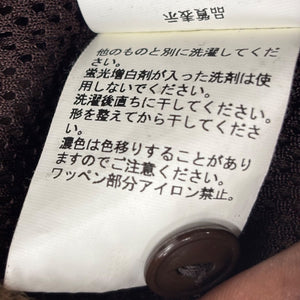 品質表示
他のものと別に洗濯してくだ
さい。
蛍光増白剤が入った洗剤は使
用しないでください。
洗濯後直ちに干してください。
形を整えてから干してくださ
い。
濃色は色移りすることがあり
ますのでご注意ください。
ワッペン部分アイロン禁止。